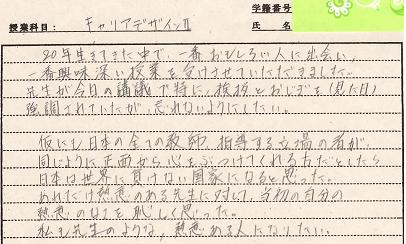 学籍番号
授業科目: キャリアデザインⅡ 氏 名
20年生きてきた中で、一番おもしろい人に出会い、
一番興味深い授業を受けさせていただきました。
先生が今日の講議で特に、挨拶とおじぎを(見た目)
強調されていたが、忘れないようにしたい。
仮にも日本の全ての教師、指導する立場の者が、
同じように正面から心をぶつけてくれる方だとしたら
日本は世界に負けない国家になると思った。
あれだけ熱意のある先生に対して、当初の自分の
熱意のなさを恥しく思った。
私も先生のような、熱意ある人になりたい。